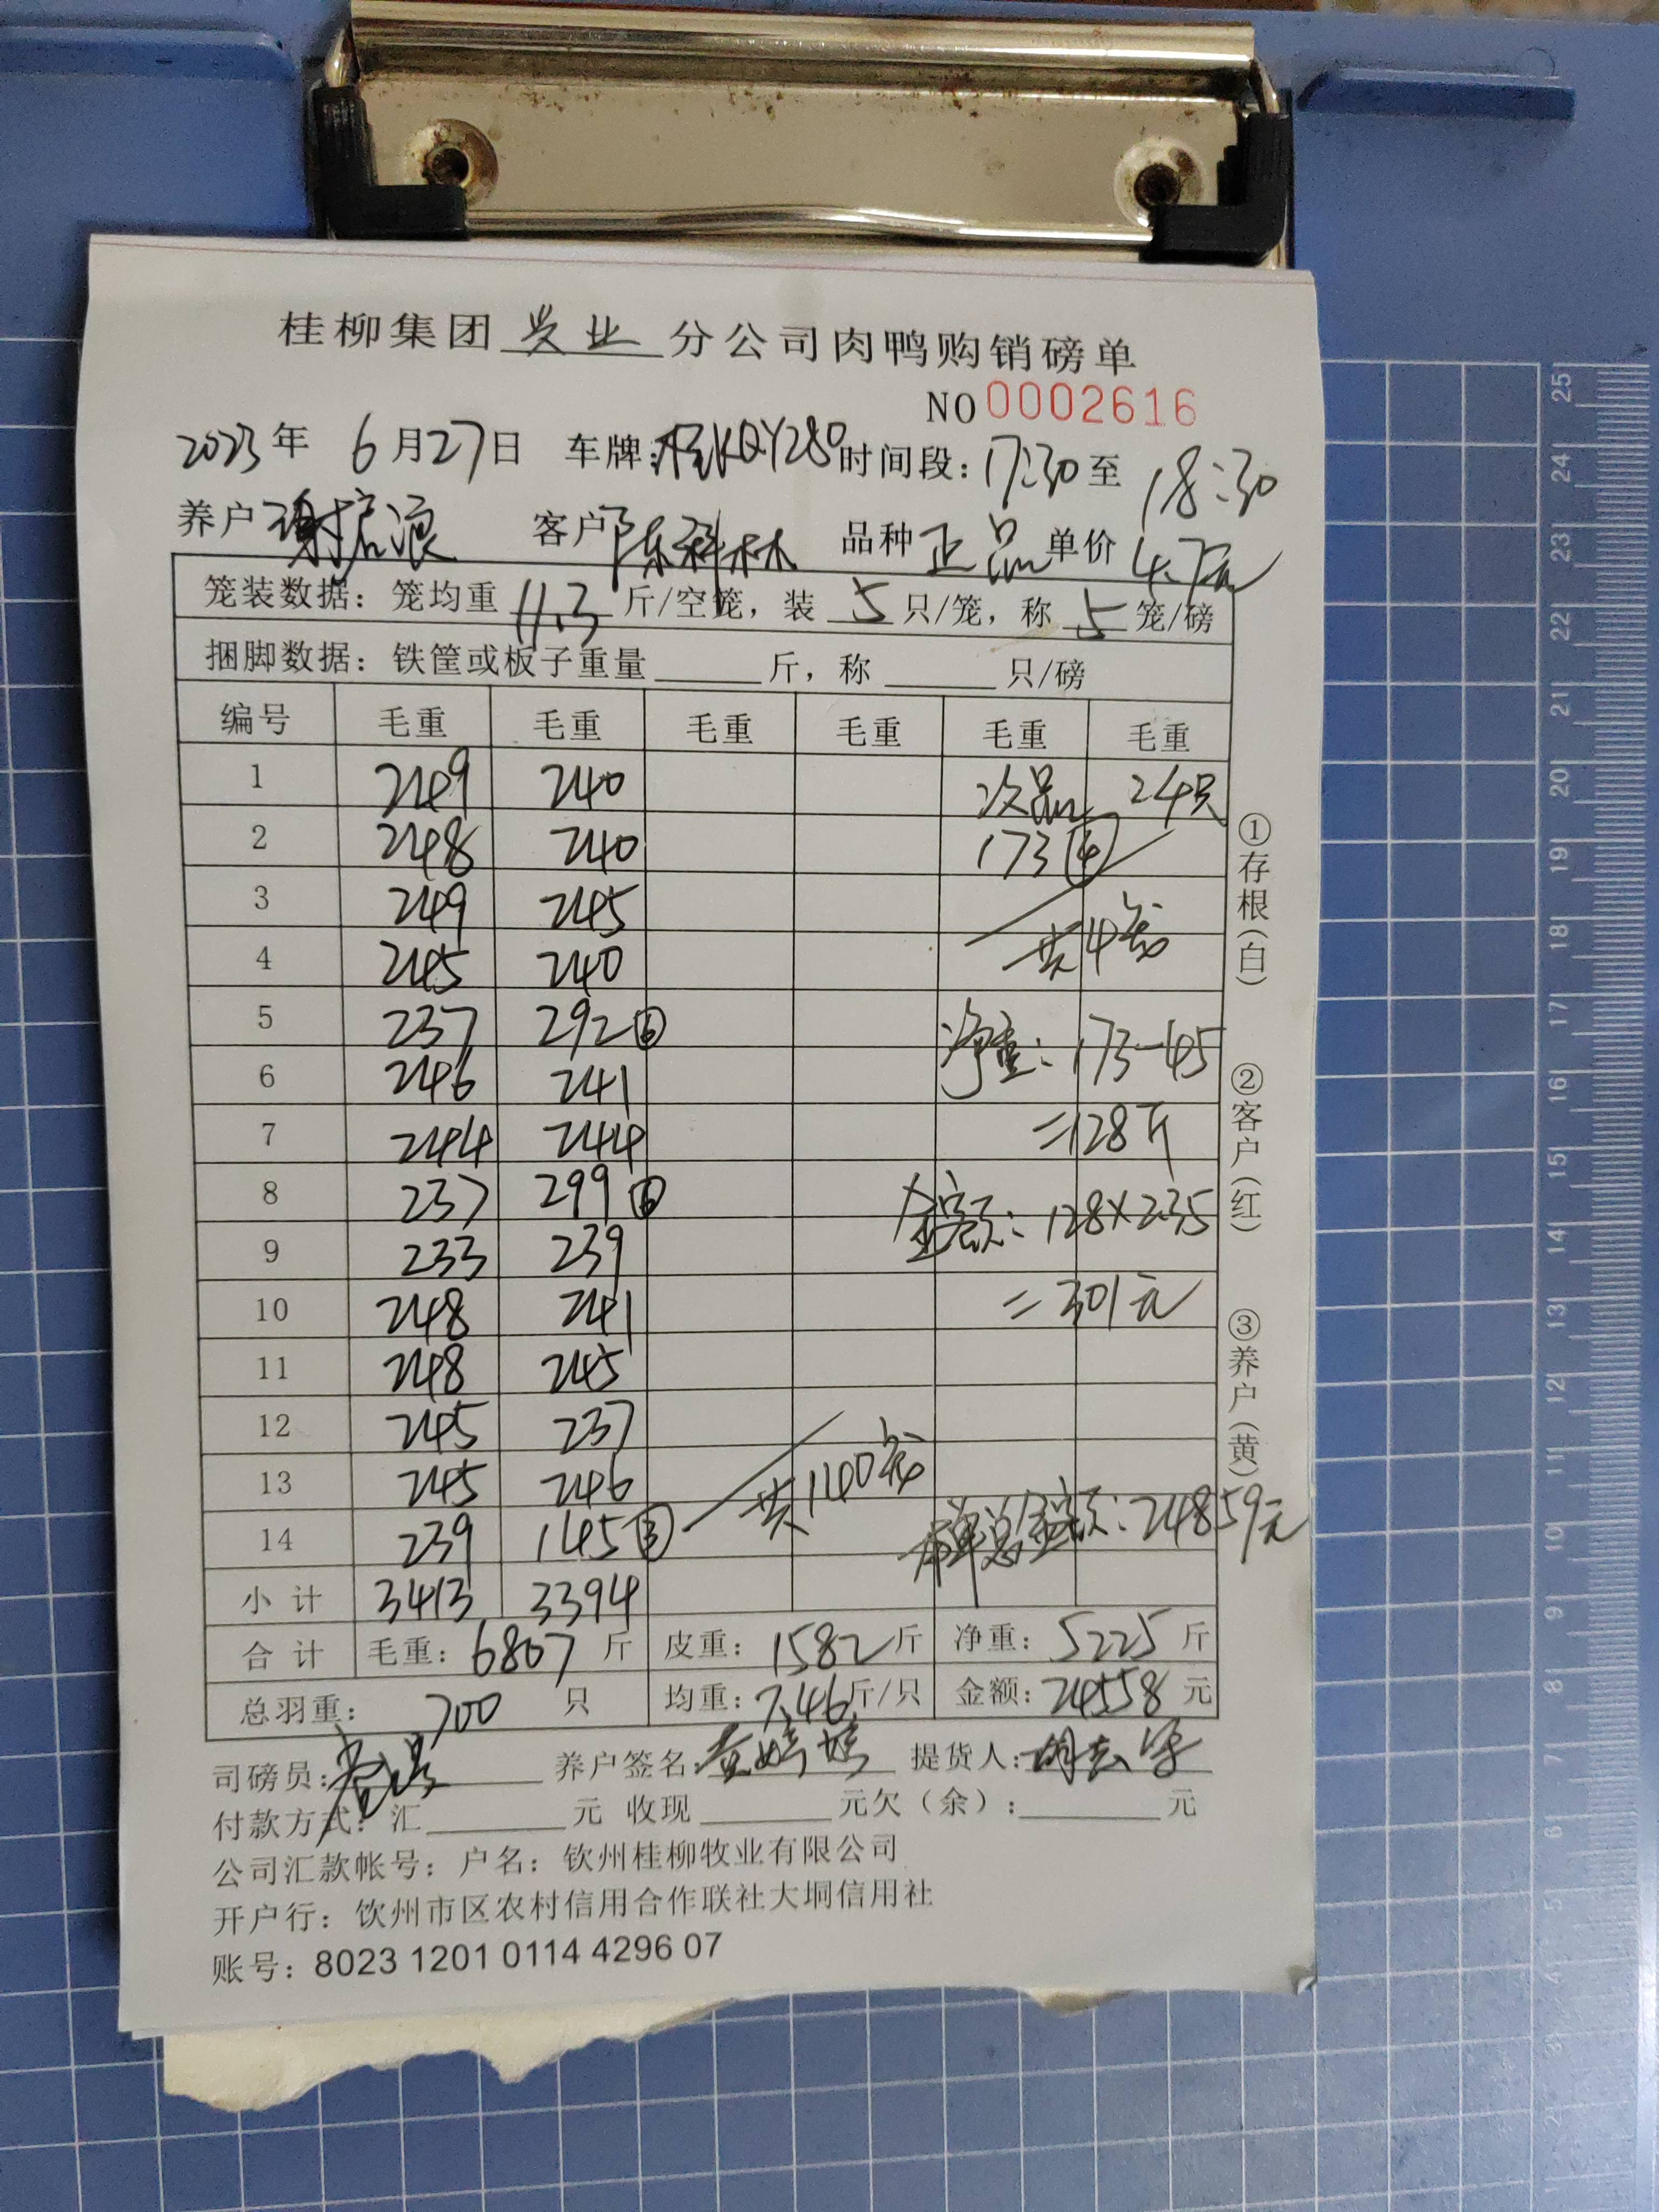 桂柳集团 兴业 分公司肉鸭购销磅单
NO 0002616
2023年 6月27日 车牌:桂KQY280 时间段:17:30至18:30
养户 谢启浪 客户 陈科林 品种 正品 单价 4.7元
笼装数据:笼均重 11.3 斤/空笼,装 5 只/笼,称 5 笼/磅
捆脚数据:铁筐或板子重量 斤,称 只/磅
编号 毛重 毛重 毛重 毛重 毛重 毛重
1 249 240 次品 24只
2 248 240 173④
3 249 245
4 245 240 共4笼
5 237 292⑥ 净重:173-45
6 246 241
7 244 244 =128斤
8 237 299⑥ 金额:128×2.35
9 233 239
10 248 241 =301元
11 248 245
12 245 237
13 245 246 共140笼
14 239 145③ 本单总金额:24859元
小计 3413 3394
合计 毛重:6807斤 皮重:1582斤 净重:5225斤
总羽重: 700 只 均重:7.46斤/只 金额:24558元
司磅员: 养户签名:黄婷婷 提货人:
付款方式:汇 元 收现 元欠(余): 元
公司汇款帐号:户名:钦州桂柳牧业有限公司
开户行:钦州市区农村信用合作联社大垌信用社
账号:8023 1201 0114 4296 07
①存根(白) ②客户(红) ③养户(黄)
25
24
23
22
21
20
19
18
17
16
15
14
13
12
11
10
9
8
7
6
5
4
3
2